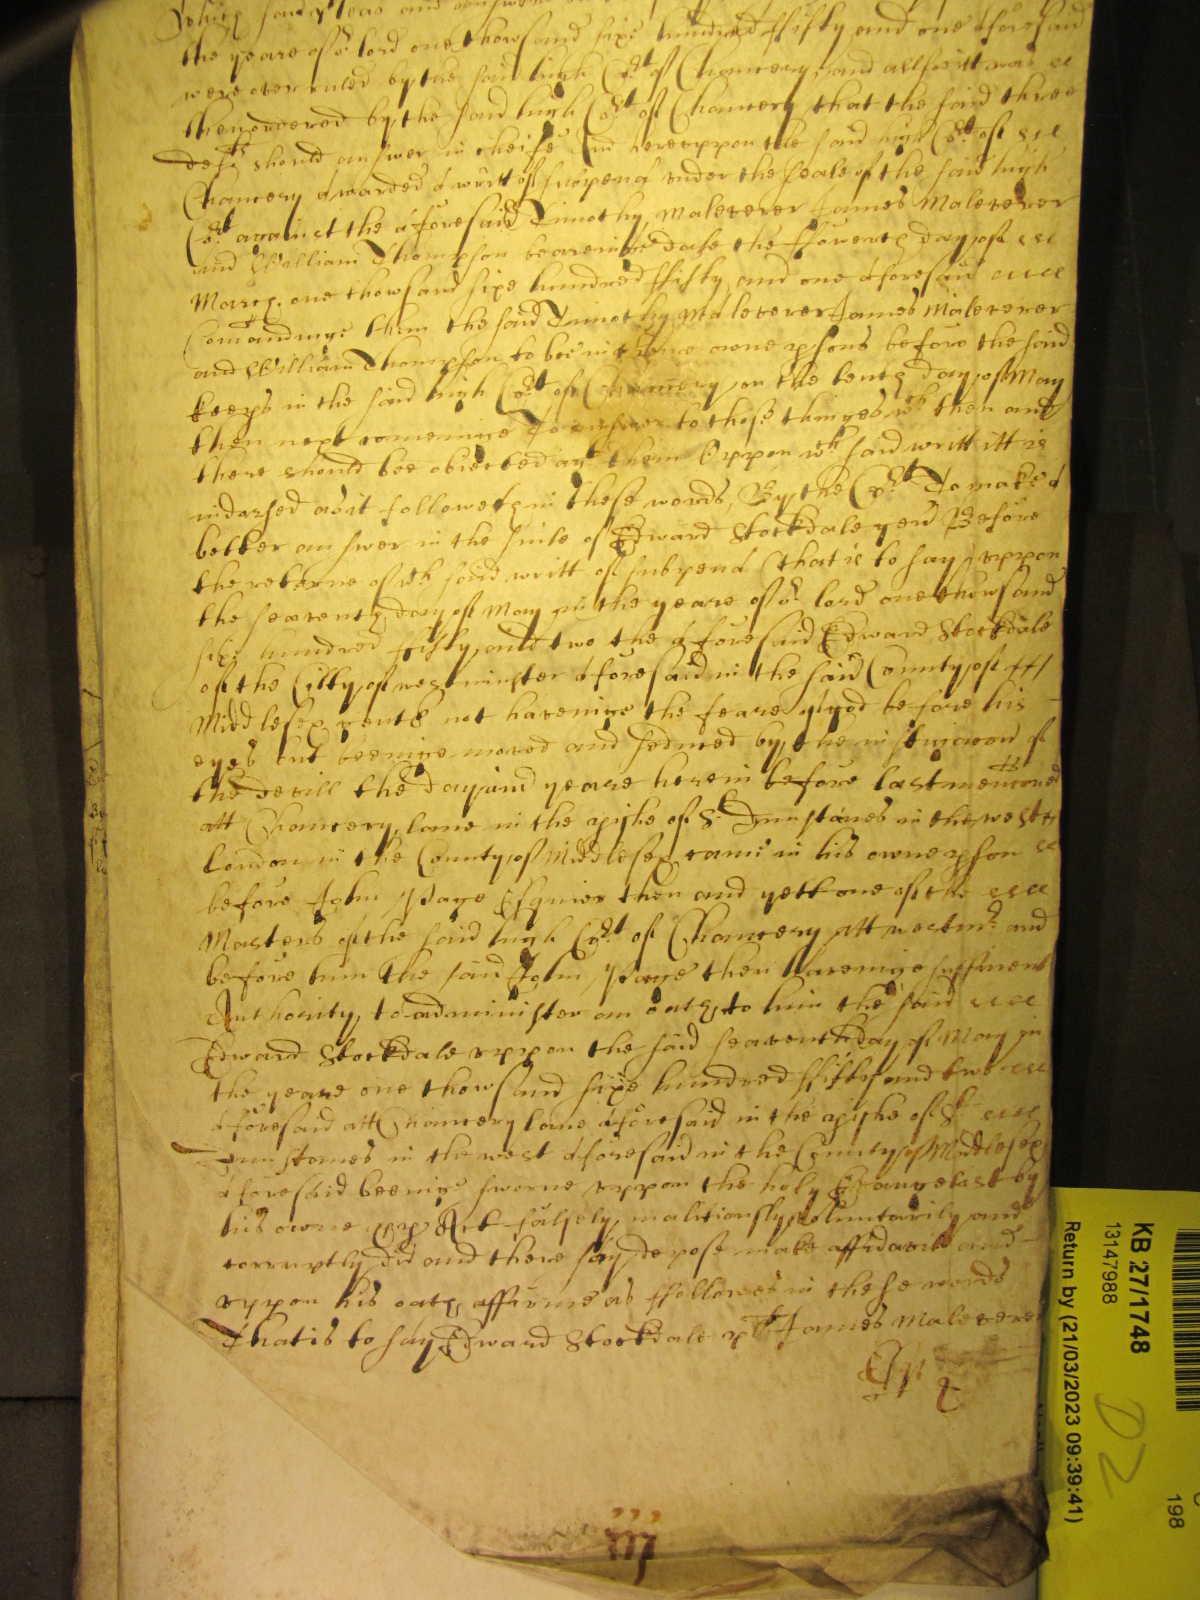 the yeare of or. lord one thowsand sixe hundred ffifty and one aforesaid
were over ruled by the said high Cort. of Chancery, and allso itt was
then ordered by the said high Cort. of Chancery that the said three
defts should answer in cheife And hereuppon the said high Cort. of
Chancery awarded a writt of subpena under the seale of the said high
Cort. against the aforesaid Timothy Maleverer James Maleverer
and William Thompson beareinge date the day of
March one thowsand sixe hundred ffifty and one aforesaid
Comandinge them the said Timothy Maleverer James Maleverer
and William Thompson to bee in their owne psons before the said
keeps in the said high Cort. of Chancery on the tenth day of May
then next comeinge To answer to those thinges wch then and
there should bee obiected agt them Uppon wch said writt itt is
indorsed as it followeth in these words, By the Cort. To make a
better answer in the suite of Edward Stockdale gen Before
the retorne of wch said writt of subpena (that is to say) uppon
the seaventh day of May in the yeare of or. lord one thowsand
sixe hundred fifty and two the aforesaid Edward Stockdale
of the Citty of westminster aforesaid in the said County of
Middlesex gent not haveinge the feare of god before his
eyes but beeinge moved and seduced by the instigacon of
the devill the day and yeare herein before last mentioned
att Chancery lane in the pishe of St. Dunstanes in the west
London in the County of Middlesex came in his owne pson
before John Page Esquier then and yett one of the
Masters of the said high Cort. of Chancery att westmr. and
before him the said John Page then haveinge sufficient
Authority to administer an oath to him the said
Edward Stockdale uppon the said seaventh day of May in
the yeare one thowsand sixe hundred ffifty and two
aforesaid att Chancery lane aforesaid in the pishe of St.
Dunstanes in the west aforesaid in the County of Middlesex
aforesaid beeinge sworne uppon the holy Evangelist by
his owne Act falsely, malitiously, voluntarily and
corruptly did and there say, depose make affidavit and
uppon his oath affirme as ffollowes in these words
That is to say Edward Stockdale plt James Maleverer
KB 27/1748
13147988
Return by (21/03/2023 09:39:41)
D2
198